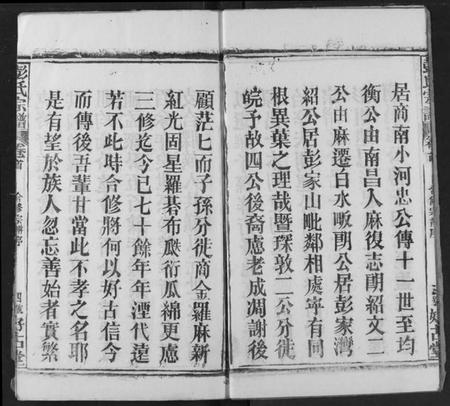 居商南小河忠公傳十一世至均
衡公由南昌入麻復志朗紹文二
公由麻遷白水畈朗公居彭家灣
紹公居彭家山毗鄰相處寧有同
根異葉之理哉暨琛敦二公分徙
皖予故四公後裔慮老成凋謝後
顧茫匕而子孫分徙商金羅麻新
紅光固星羅碁布瓞衍瓜綿更慮
三修迄今已七十餘年年湮代遠
若不此時合修將何以好古信今
而傳後吾輩甘當此不孝之名耶
是有望於族人忽忘善始者實繁
彭氏宗譜
卷首
合修宗譜序
好古堂